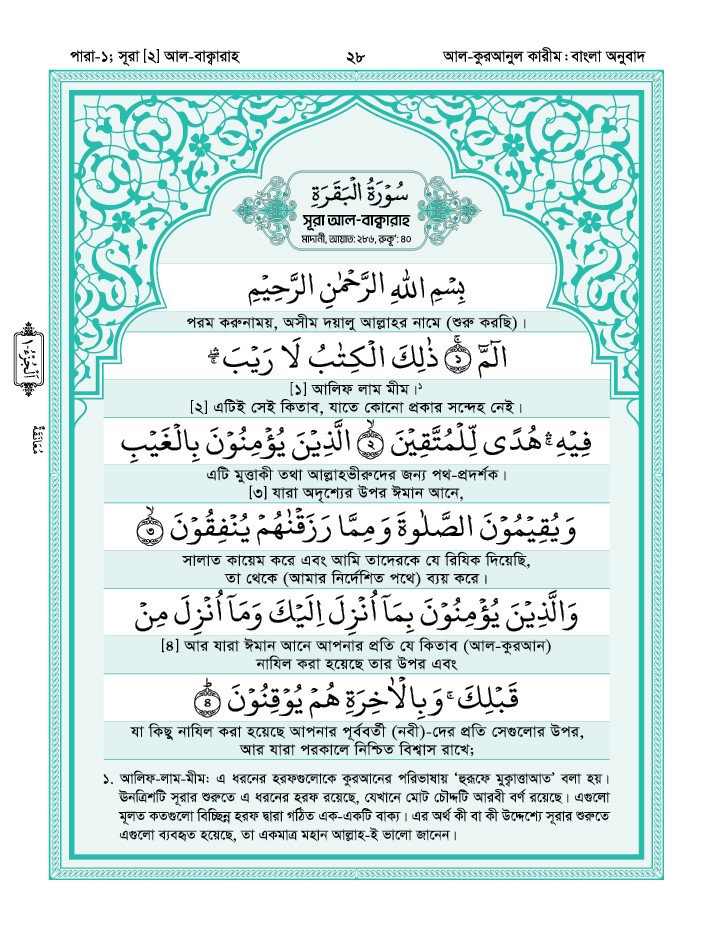 পারা-১; সূরা [২] আল-বাক্বারাহ
২৮
আল-কুরআনুল কারীম : বাংলা অনুবাদ
سُوْرَةُ الْبَقَرَةِ
সূরা আল-বাক্বারাহ
মাদানী, আয়াত: ২৮৬, রুকূ': ৪০
بِسْمِ اللهِ الرَّحْمٰنِ الرَّحِيْمِ
পরম করুনাময়, অসীম দয়ালু আল্লাহর নামে (শুরু করছি)।
الٓمّٓ ۚ ۝١ ذٰلِكَ الْكِتٰبُ لَا رَيْبَ ۛۖ
[১] আলিফ লাম মীম।১
[২] এটিই সেই কিতাব, যাতে কোনো প্রকার সন্দেহ নেই।
فِيْهِ ۛۚ هُدًى لِّلْمُتَّقِيْنَ ۙ ۝٢ الَّذِيْنَ يُؤْمِنُوْنَ بِالْغَيْبِ
এটি মুত্তাকী তথা আল্লাহভীরুদের জন্য পথ-প্রদর্শক।
[৩] যারা অদৃশ্যের উপর ঈমান আনে,
وَيُقِيْمُوْنَ الصَّلٰوةَ وَمِمَّا رَزَقْنٰهُمْ يُنْفِقُوْنَ ۙ ۝٣
সালাত কায়েম করে এবং আমি তাদেরকে যে রিযিক দিয়েছি,
তা থেকে (আমার নির্দেশিত পথে) ব্যয় করে।
وَالَّذِيْنَ يُؤْمِنُوْنَ بِمَآ اُنْزِلَ اِلَيْكَ وَمَآ اُنْزِلَ مِنْ
[৪] আর যারা ঈমান আনে আপনার প্রতি যে কিতাব (আল-কুরআন)
নাযিল করা হয়েছে তার উপর এবং
قَبْلِكَ ۚ وَبِالْاٰخِرَةِ هُمْ يُوْقِنُوْنَ ؕ ۝٤
যা কিছু নাযিল করা হয়েছে আপনার পূর্ববর্তী (নবী)-দের প্রতি সেগুলোর উপর,
আর যারা পরকালে নিশ্চিত বিশ্বাস রাখে;
১. আলিফ-লাম-মীম: এ ধরনের হরফগুলোকে কুরআনের পরিভাষায় 'হুরূফে মুক্বাত্তাআত' বলা হয়।
ঊনত্রিশটি সূরার শুরুতে এ ধরনের হরফ রয়েছে, যেখানে মোট চৌদ্দটি আরবী বর্ণ রয়েছে। এগুলো
মূলত কতগুলো বিচ্ছিন্ন হরফ দ্বারা গঠিত এক-একটি বাক্য। এর অর্থ কী বা কী উদ্দেশ্যে সূরার শুরুতে
এগুলো ব্যবহৃত হয়েছে, তা একমাত্র মহান আল্লাহ-ই ভালো জানেন।
اَلْجُزْءُ-١
مُعَانَقَةٌ